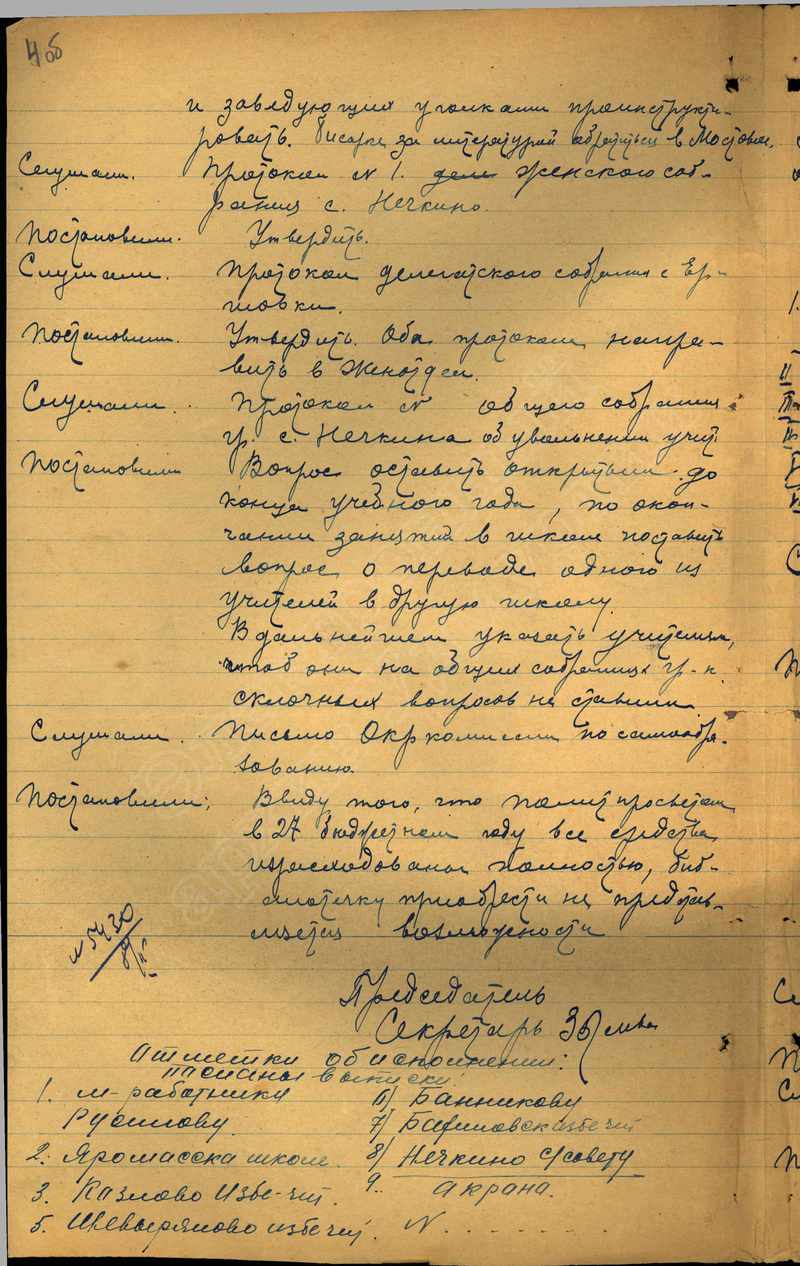 4об
и заведующих уголками проинструкти-
ровать. за литературой обратиться в Мостовое.
Слушали. Протокол № 1. женского соб-
рания с. Нечкино.
Постановили. Утвердить.
Слушали. Протокол делегатского собрания с Ер-
шовки.
Постановили. Утвердить. Оба протокола напра-
вить в Женотдел.
Слушали. Протокол № общего собрания
гр. с. Нечкина об увольнении учит.
Постановили Вопрос оставить открытым до
конца учебного года, по окон-
чании занятий в школе поставить
вопрос о переводе одного из
учителей в другую школу.
В дальнейшем указать учителям,
чтоб они на общих собраниях гр-н
склочных вопросов не ставили.
Слушали. Письмо Окркомиссии по самообра-
зованию.
Постановили: Ввиду того, что политпросветом
в 27 бюджетном году все средства
израсходованы полностью, биб-
лиотечку приобрести не представ-
ляется возможности
№ 5430
Председатель
Секретарь
Отметки об исполнении:
посланы выписки:
1. М-работники 6) Банникову
7)
2. Яромасска школе. 8) Нечкино с/совету
3. Казлово Избе-чит. 9. Акрана.
5. Шевыряново избе чит. N